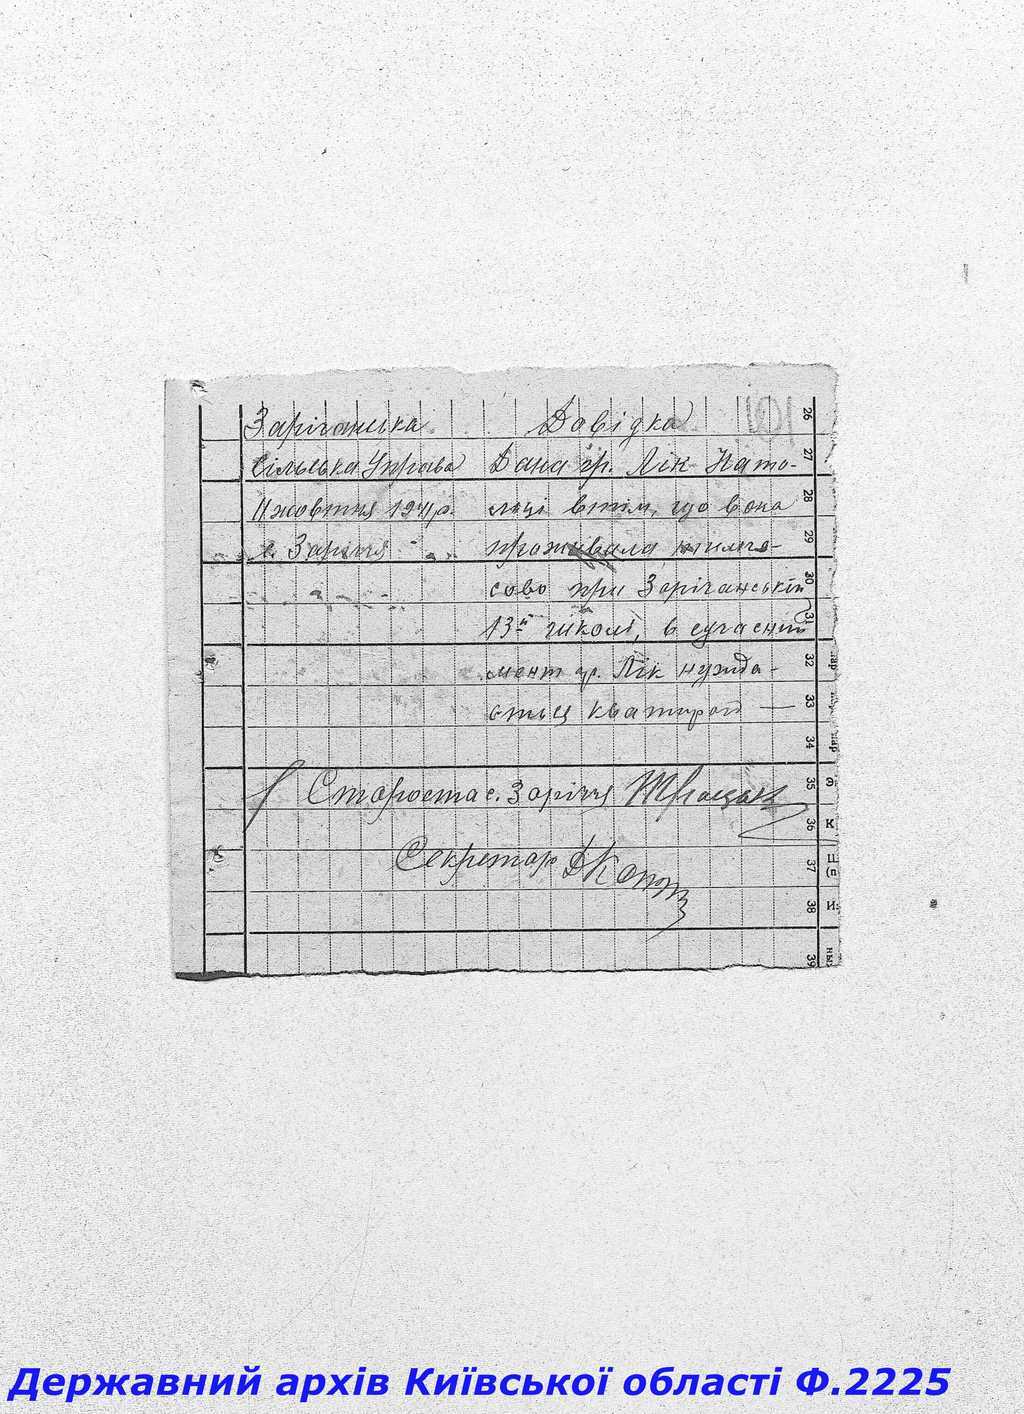 Зарічанська
Сільська Управа
11 жовтня 1941р.
с. Заріччя
Довідка
101
Дана гр. Лік Ната-
лці втім, що вона
проживала тимча-
сово при Зарічанській
13й школі, в сучасний
мент гр. Лік нужда-
ється кватирой —
Староста с. Заріччя
Секретар
26
27
28
29
30
31
32
33
34
35
36
37
38
39
Державний архів Київської області Ф.2225